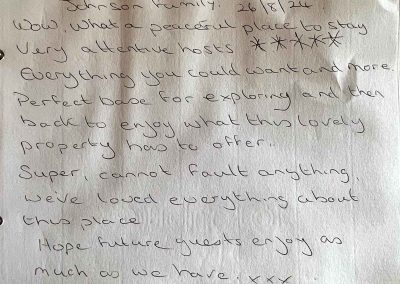 Johnson Family. 26/8/24
Wow. What a peaceful place to stay
Very attentive hosts *****
Everything you could want and more.
Perfect base for exploring and then
back to enjoy what this lovely
property has to offer.
Super, cannot fault anything,
we've loved everything about
this place
Hope future guests enjoy as
much as we have. xxx